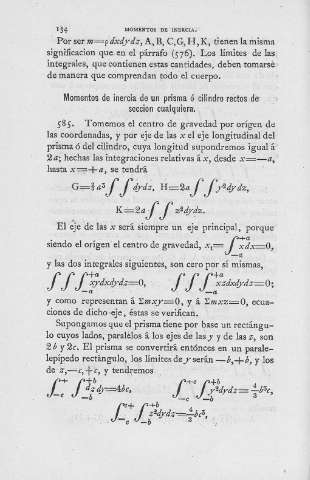 154 MOMENTOS DE INERCIA.
Por ser m=ρ dxdydz, A, B, C, G, H, K, tienen la misma
significacion que en el párrafo (576). Los límites de las
integrales, que contienen estas cantidades, deben tomarse
de manera que comprendan todo el cuerpo.
Momentos de inercia de un prisma ó cilindro rectos de
seccion cualquiera.
585. Tomemos el centro de gravedad por orígen de
las coordenadas, y por eje de las x el eje longitudinal del
prisma ó del cilindro, cuya longitud supondremos igual á
2a; hechas las integraciones relativas á x, desde x=—a,
hasta x=+a, se tendrá
G=⅔ a³ ∫ ∫ dydz, H=2a ∫ ∫ y²dydz,
K=2a ∫ ∫ z²dydz.
El eje de las x será siempre un eje principal, porque
siendo el orígen el centro de gravedad, x₁= ∫_{—a}^{+a} xdx=0,
y las dos integrales siguientes, son cero por si mismas,
∫ ∫ ∫_{—a}^{+a} xydxdydz=0, ∫ ∫ ∫_{—a}^{+a} xzdxdydz=0;
y como representan á Σmxy=0, y á Σmxz=0, ecua-
ciones de dicho eje, éstas se verifican.
Supongamos que el prisma tiene por base un rectángu-
lo cuyos lados, paralelos á los ejes de las y y de las z, son
2b y 2c. El prisma se convertirá entónces en un parale-
lepípedo rectángulo, los límites de y serán —b,+b, y los
de z,—c,+c, y tendremos
∫_{—c}^{+} ∫_{—b}^{+b} dz dy=4bc, ∫_{—c}^{+c} ∫_{—b}^{+b} y²dydz= 4/3 b³c,
∫_{—c}^{c+} ∫_{—b}^{+b} z²dydz= 4/3 bc³,